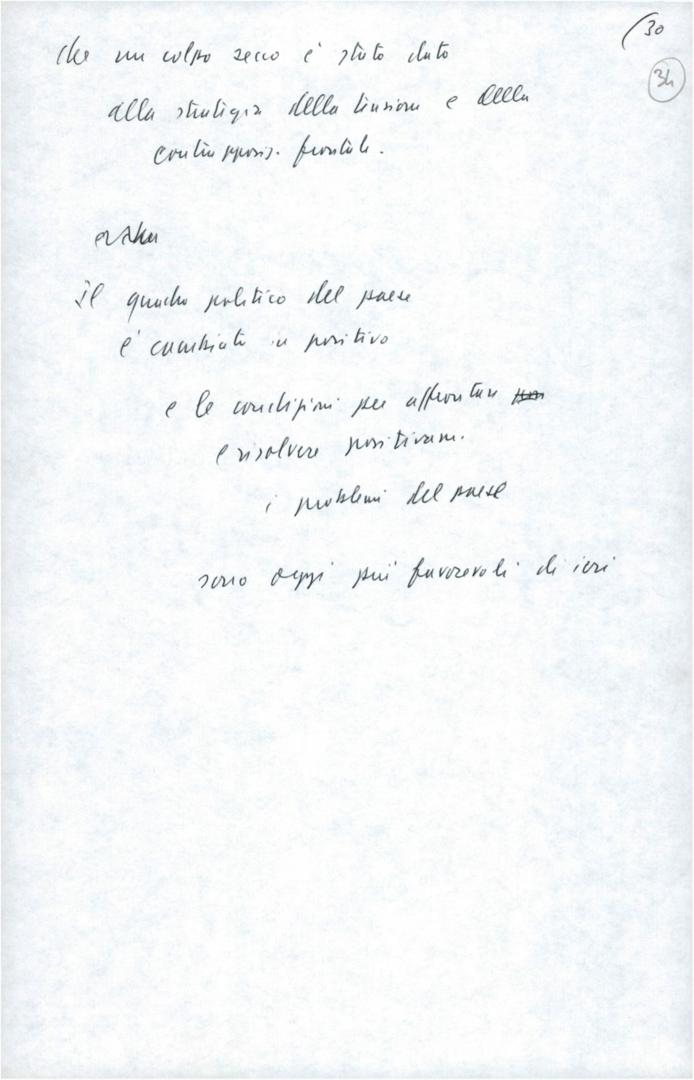 30
34
che un colpo secco è stato dato
alla strategia della tensione e della
contrapposiz. frontale.
Il quadro politico del paese
è cambiato in positivo
e le condizioni per affrontare
e risolvere positivam.
i problemi del paese
sono oggi più favorevoli di ieri